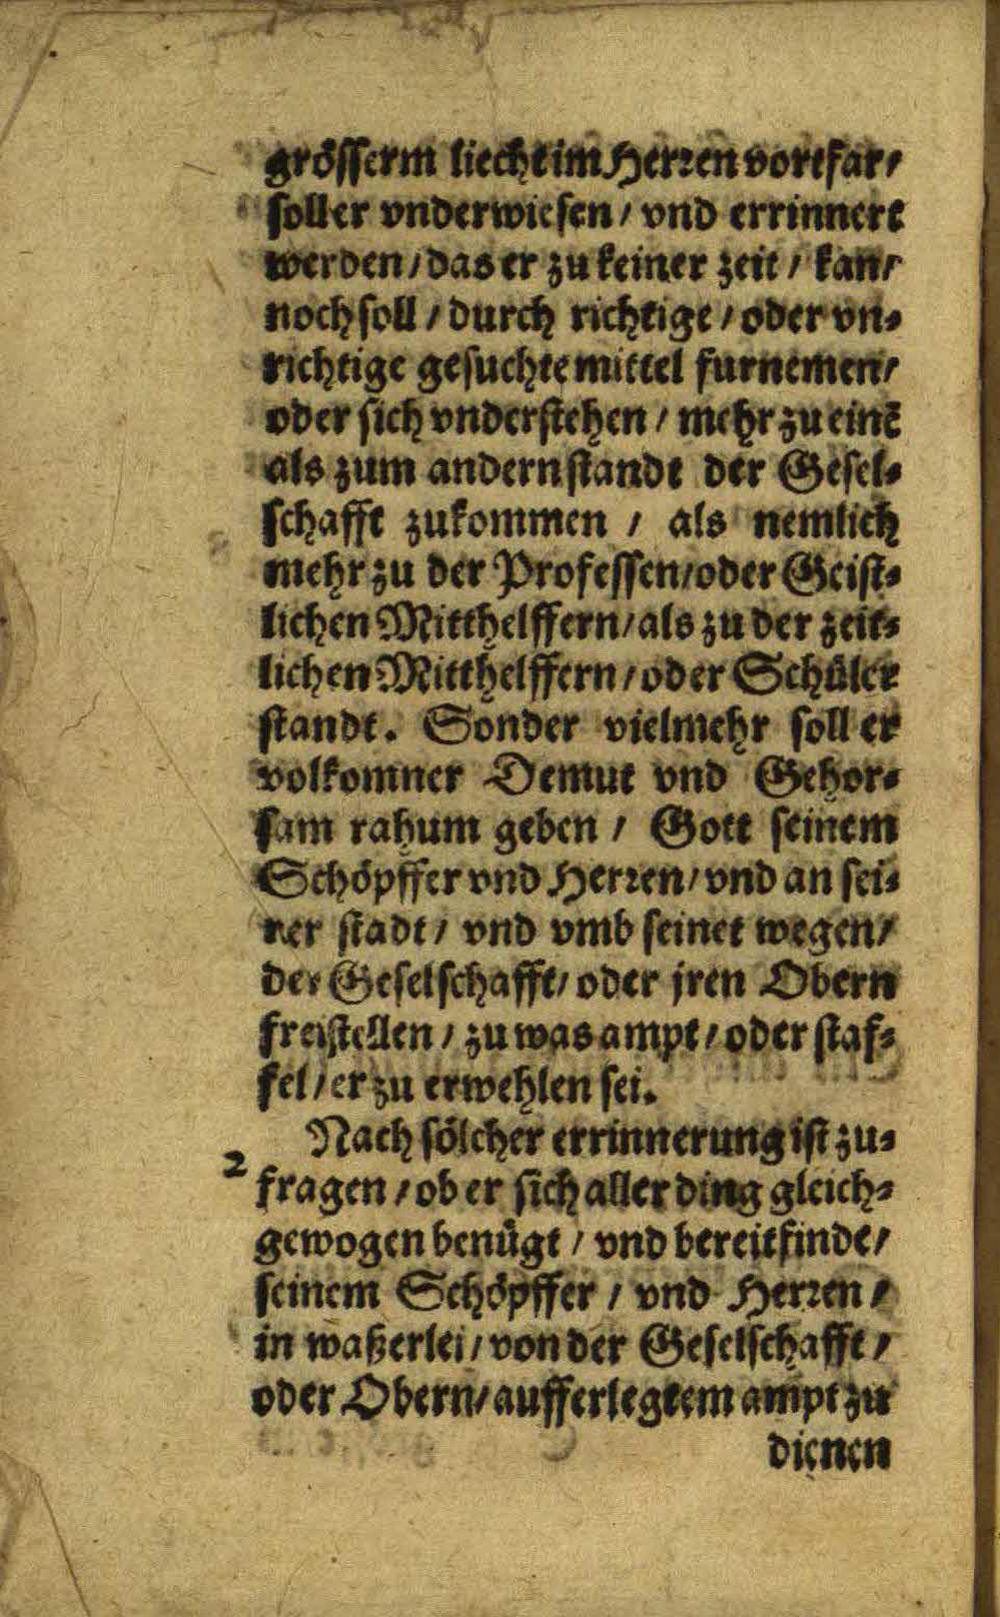 grösserm liecht im Herren vortfar/
soll er vnderwiesen / vnd errinnert
werden / das er zu keiner zeit / kan/
noch soll / durch richtige / oder vn-
richtige gesuchte mittel furnemen/
oder sich vnderstehen / mehr zu einē
als zum andern standt der Gesel-
schafft zukommen / als nemlich
mehr zu der Professen/oder Geist-
lichen Mitthelffern/als zu der zeit-
lichen Mitthelffern / oder Schüler
standt. Sonder vielmehr soll er
volkomner Demut vnd Gehor-
sam rahum geben / Gott seinem
Schöpffer vnd Herren/vnd an sei-
ner stadt / vnd vmb seinet wegen/
der Geselschafft/ oder jren Obern
freistellen / zu was ampt / oder staf-
fel / er zu erwehlen sei.
Nach sölcher errinnerung ist zu-
2 fragen / ob er sich aller ding gleich-
gewogen benügt / vnd bereit finde/
seinem Schöpffer / vnd Herren /
in waßerlei / von der Geselschafft /
oder Obern/aufferlegtem ampt zu
dienen